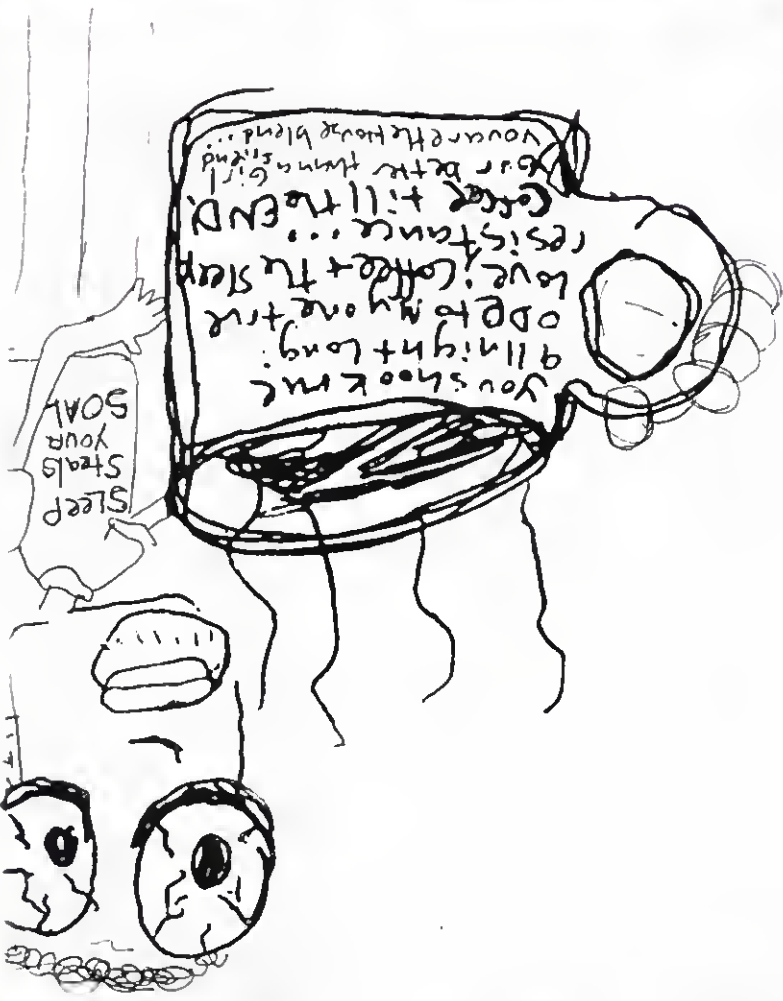 you shook me
all night long.
ODE to my one true
love; Coffee + the sleep
resistance...
Coffee till the END.
Far better thanna Girl
friend
you are the House blend...
SLEEP
Steals
YOUR
SOAL